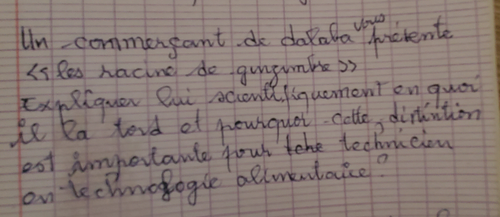 Un commerçant de dalaba vous présente
<< les racine de gingimbre >>
Expliquer lui scientifiquement en quoi
il la tord et pourquoi cette distintion
est importante pour tche technicien
en technologie alimentaire?